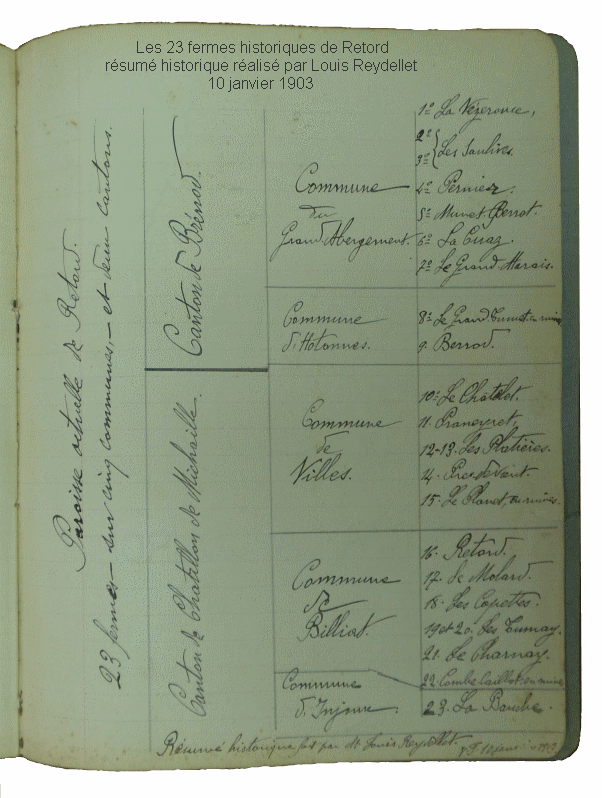 Les 23 fermes historiques de Retord
résumé historique réalisé par Louis Reydellet
10 janvier 1903
Paroisse actuelle de Retord.
23 fermes - sur cinq communes, - et deux cantons.
Canton de Brénod.
Commune
du
Grand Abergement.
1º La Vézeronce,
2º
3º } Les Saulives.
4º Pernier.
5º Munet Perrot.
6º La Cuaz.
7º Le Grand Marais.
Commune
d'Hotonnes.
8º Le Grand Tumet en ruine
9. Berrod.
Canton de Chatillon de Michaille.
Commune
de
Villes.
10º Le Châtelet.
11. Praneyret,
12-13. Les Platières.
14. Pré devant.
15. Le Planet, en ruines.
Commune
de
Billiat.
16. Retord.
17. Le Molard.
18. Les Capettes.
19 et 20. Les Tumay.
21. Le Charnay.
Commune
d'Injoux.
22. Combe Caillot en ruine
23. La Bauche.
Résumé historique fait par Mr Louis Reydellet.